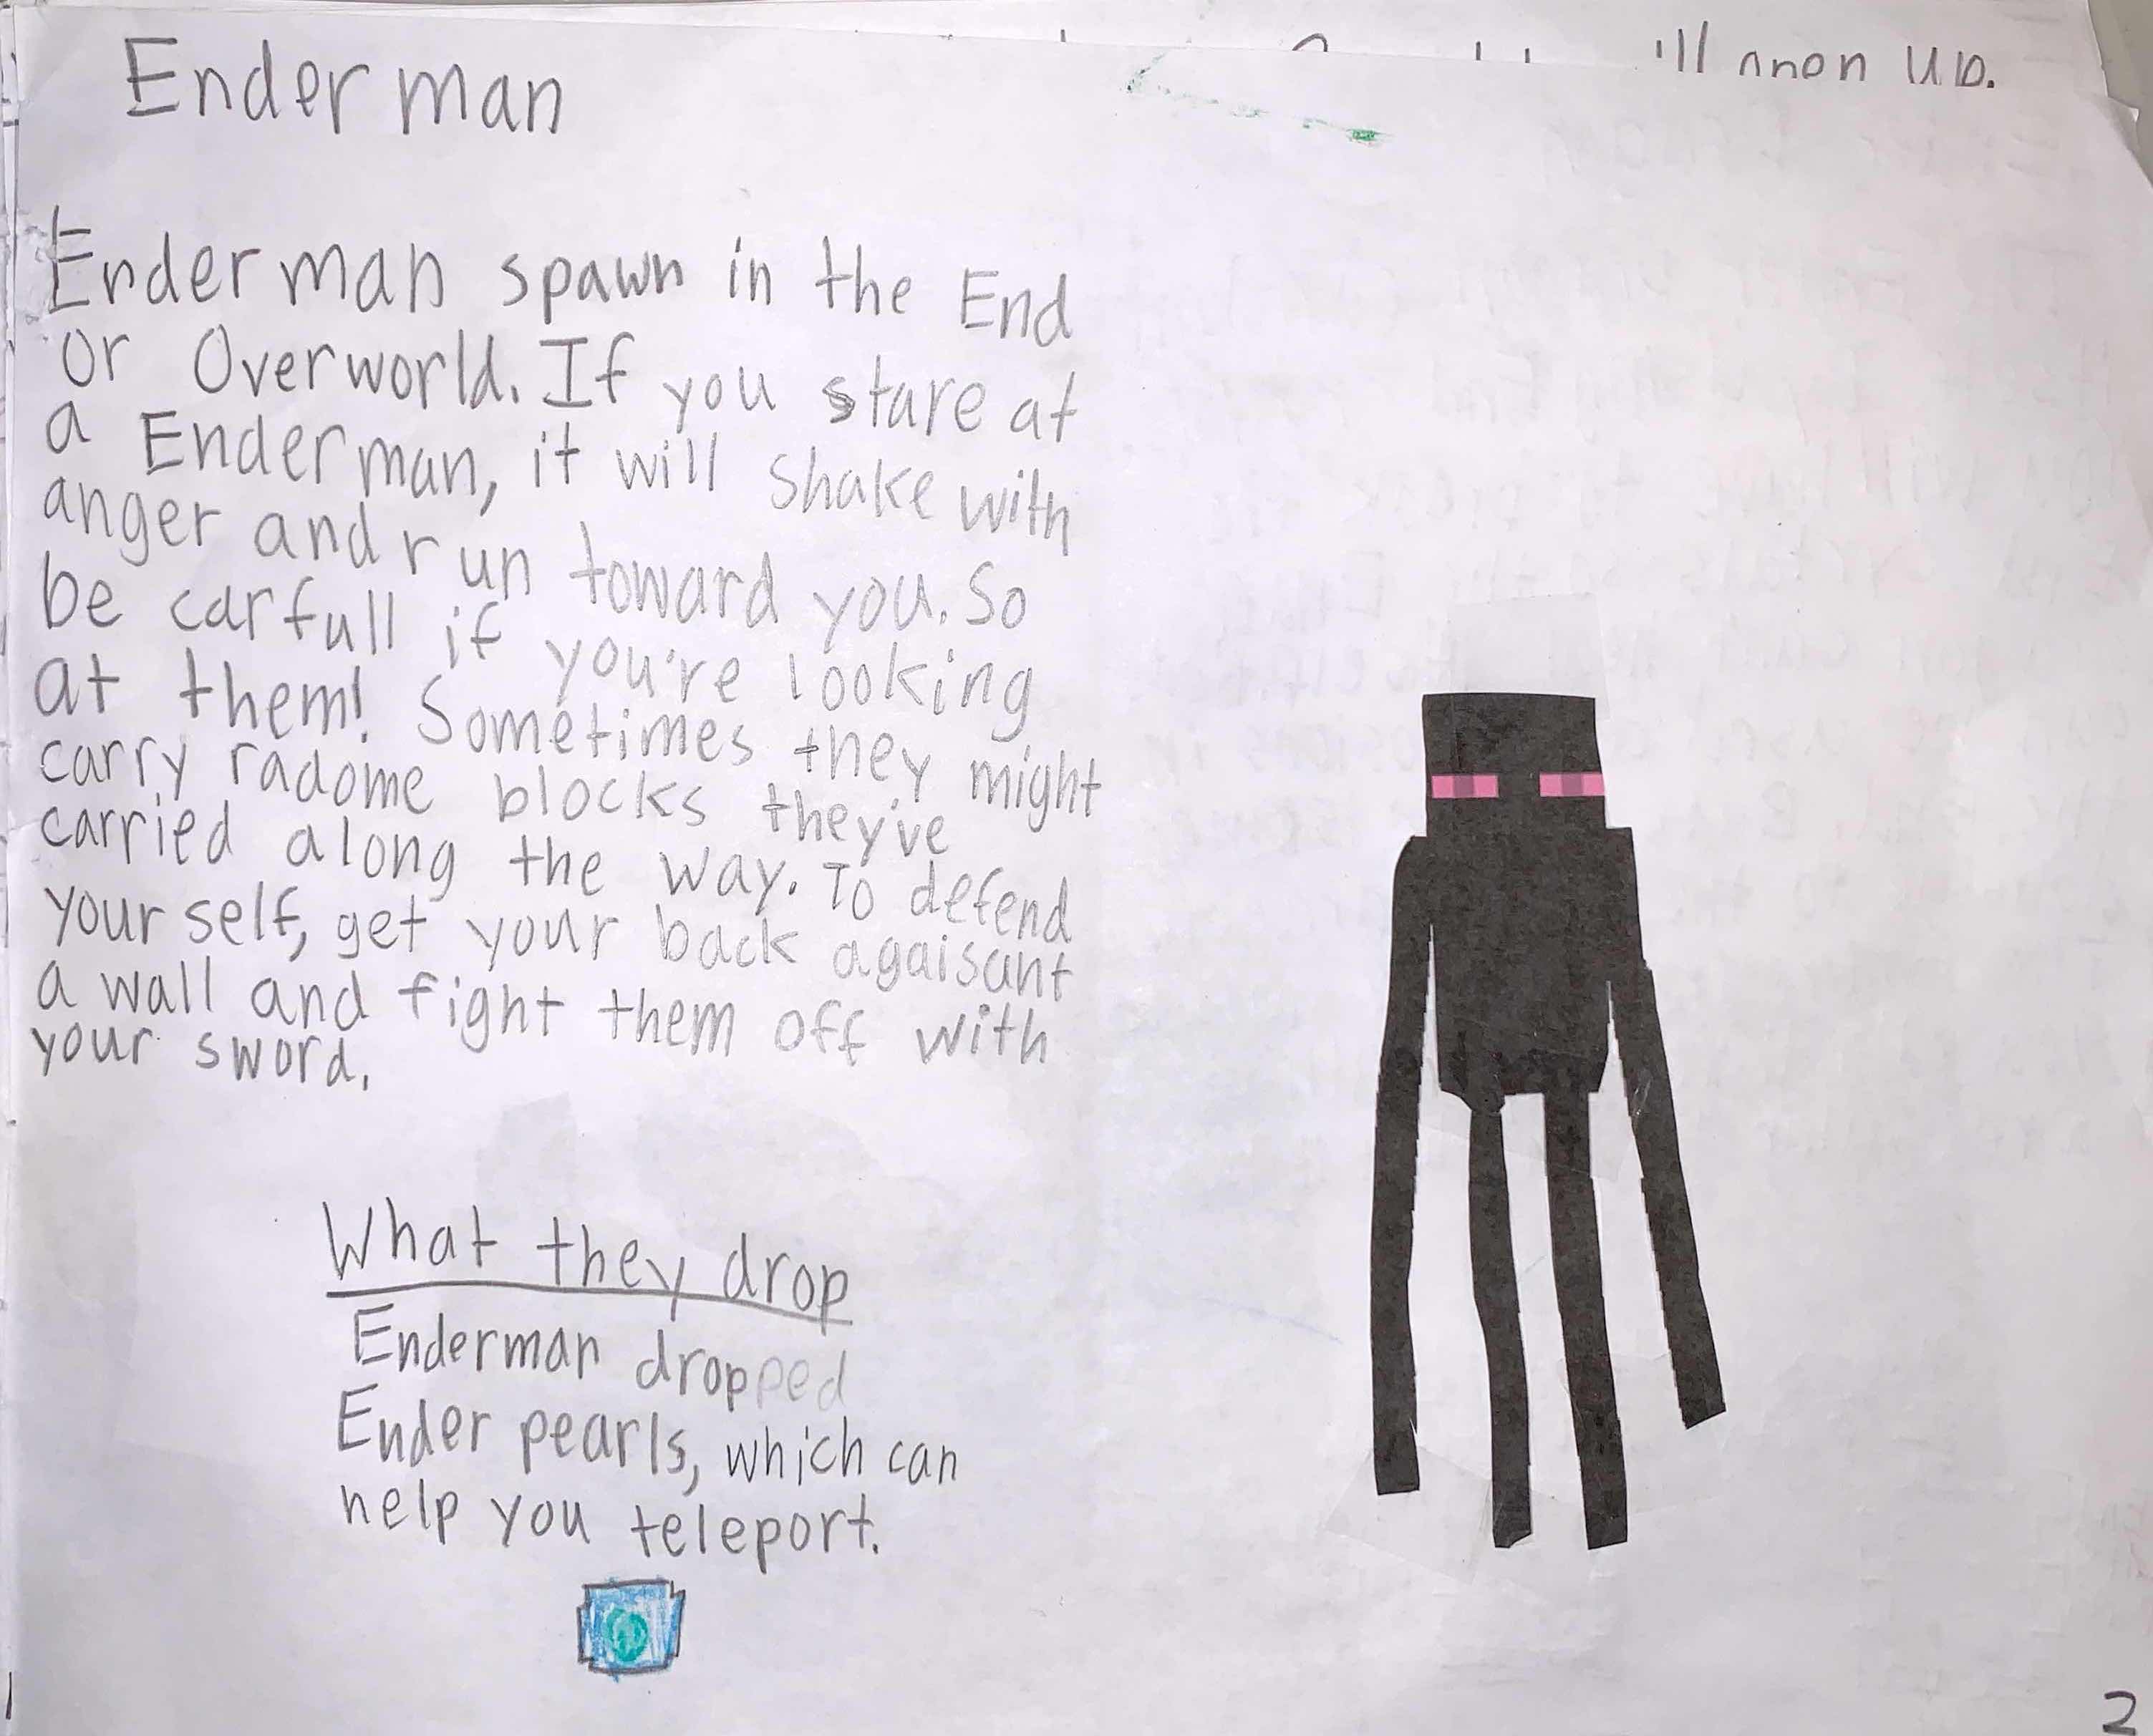 Enderman
Enderman spawn in the End
or Overworld. If you stare at
a Enderman, it will shake with
anger and run toward you. So
be carfull if you're looking
at them! Sometimes they might
carry radome blocks they've
carried along the way. To defend
your self, get your back agaisant
a wall and fight them off with
your sword.
What they drop
Enderman dropped
Ender pearls, which can
help you teleport.
1
2